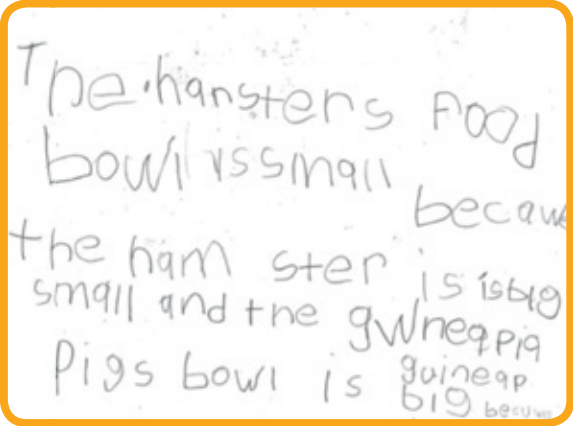 The hansters Food
bowl is small
becaus
the ham ster is is big
small and the gwneapig
Pigs bowl is guineap
big becuse